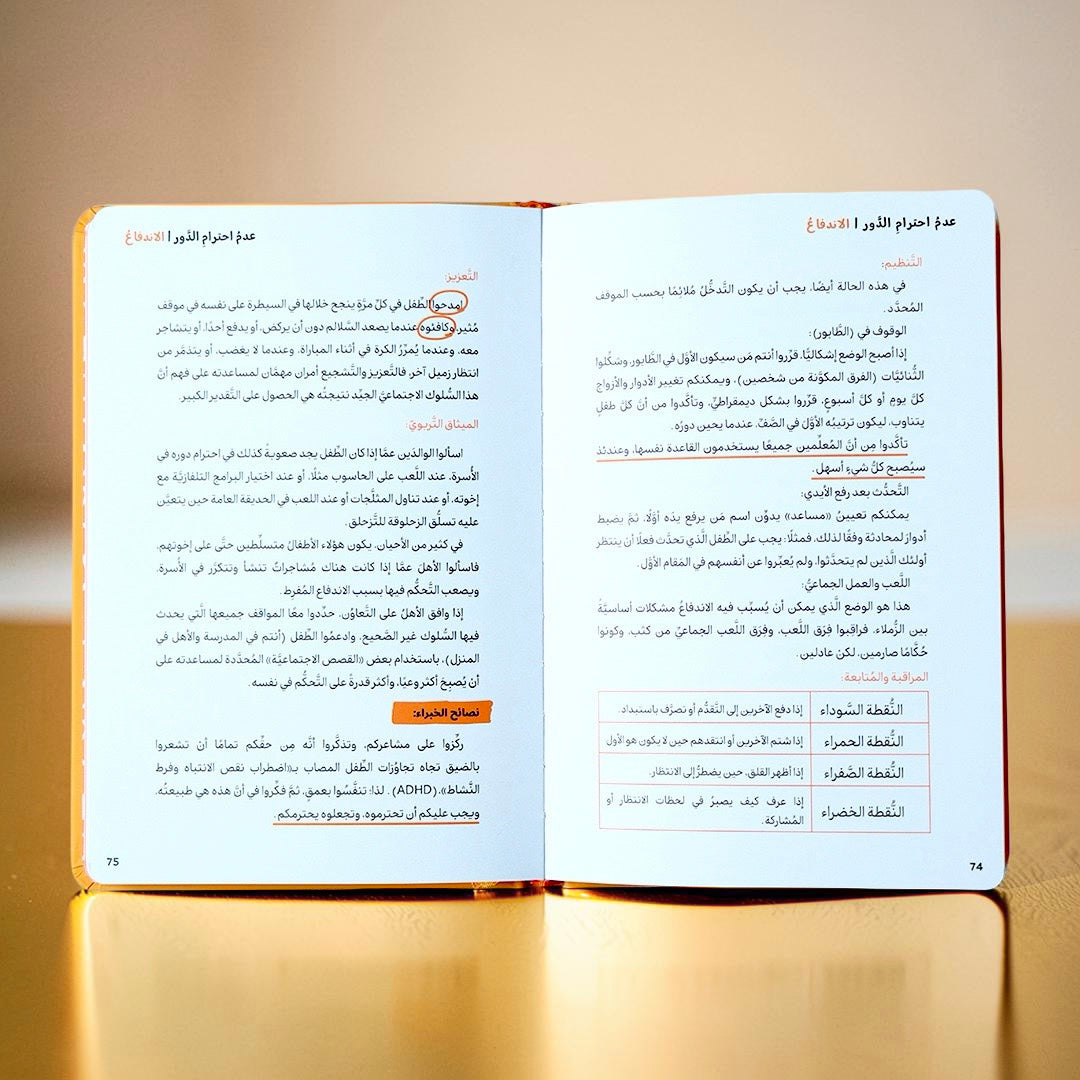 عدمُ احترامِ الدَّور | الاندفاعُ
التَّنظيم:
في هذه الحالة أيضًا، يجب أن يكون التَّدخُّلُ مُلائِمًا بحسب الموقف
المُحدَّد.
الوقوف في (الطَّابور):
إذا أصبح الوضع إشكاليًّا، قرِّروا أنتم مَن سيكون الأوَّل في الطَّابور، وشكِّلوا
الثُّنائيَّات (الفرق المكوَّنة من شخصين)، ويمكنكم تغيير الأدوار والأزواج
كلَّ يومٍ أو كلَّ أسبوعٍ، قرِّروا بشكل ديمقراطيٍّ، وتأكَّدوا من أنَّ كلَّ طفلٍ
يتناوب، ليكون ترتيبُه الأوَّل في الصَّفِّ، عندما يحين دورُه.
تأكَّدوا مِن أنَّ المُعلِّمين جميعًا يستخدمون القاعدة نفسها، وعندئذ
سيُصبح كلُّ شيءٍ أسهل.
التَّحدُّث بعد رفع الأيدي:
يمكنكم تعيينُ «مساعد» يدوِّن اسم مَن يرفع يدَه أوَّلًا، ثمَّ يضبط
أدوارَ لمحادثة وفقًا لذلك، فمثلًا: يجب على الطِّفل الَّذي تحدَّث فعلًا أن ينتظر
أولئك الَّذين لم يتحدَّثوا، ولم يُعبِّروا عن أنفسهم في المَقام الأوَّل.
اللَّعب والعمل الجماعيُّ:
هذا هو الوضع الَّذي يمكن أن يُسبِّب فيه الاندفاعُ مشكلات أساسيَّةً
بين الزُّملاء، فراقِبوا فِرَق اللَّعب، وفِرَق اللَّعب الجماعيِّ من كثب، وكونوا
حُكَّامًا صارمين، لكن عادلين.
المراقبة والمُتابعة:
النُّقطة السَّوداء إذا دفع الآخرين إلى التَّقدُّم أو تصرَّف باستبداد.
النُّقطة الحمراء إذا شتم الآخرين أو انتقدهم حين لا يكون هو الأول
النُّقطة الصَّفراء إذا أظهر القلق، حين يضطرُّ إلى الانتظار.
النُّقطة الخضراء إذا عرف كيف يصبرُ في لحظات الانتظار أو
المُشاركة.
74
عدمُ احترامِ الدَّور | الاندفاعُ
التَّعزيز:
امدحوا الطِّفل في كلِّ مرَّةٍ ينجح خلالها في السيطرة على نفسه في موقف
مُثير، وكافئوه عندما يصعد السَّلالم دون أن يركض، أو يدفع أحدًا، أو يتشاجر
معه، وعندما يُمرِّرُ الكرة في أثناء المباراة، وعندما لا يغضب، أو يتذمَّر من
انتظار زميل آخر، فالتَّعزيز والتَّشجيع أمران مهمَّان لمساعدته على فهم أنَّ
هذا السُّلوك الاجتماعيَّ الجيِّد نتيجتُه هي الحصول على التَّقدير الكبير.
الميثاق التَّربويُّ:
اسألوا الوالدَين عمَّا إذا كان الطِّفل يجد صعوبةً كذلك في احترام دوره في
الأُسرة، عند اللَّعب على الحاسوب مثلًا، أو عند اختيار البرامج التلفازيَّة مع
إخوته، أو عند تناول المثلَّجات أو عند اللعب في الحديقة العامة حين يتعيَّن
عليه تسلُّق الزحلوقة للتَّزحلق.
في كثير من الأحيان، يكون هؤلاء الأطفالُ متسلِّطين حتَّى على إخوتهم،
فاسألوا الأهلَ عمَّا إذا كانت هناك مُشاجراتٌ تنشأ وتتكرَّر في الأُسرة،
ويصعب التَّحكُّم فيها بسبب الاندفاع المُفرط.
إذا وافق الأهلُ على التَّعاوُن، حدِّدوا معًا المواقف جميعها الَّتي يحدث
فيها السُّلوك غير الصَّحيح، وادعمُوا الطِّفل (أنتم في المدرسة والأهل في
المنزل)، باستخدام بعض «القصص الاجتماعيَّة» المُحدَّدة لمساعدته على
أن يُصبِحَ أكثر وعيًا، وأكثر قدرةً على التَّحكُّم في نفسه.
نصائح الخبراء:
ركِّزوا على مشاعركم، وتذكَّروا أنَّه مِن حقِّكم تمامًا أن تشعروا
بالضيق تجاه تجاوُزات الطِّفل المصاب بـ«اضطراب نقص الانتباه وفرط
النَّشاط»، (ADHD). لذا؛ تنفَّسُوا بعمقٍ، ثمَّ فكِّروا في أنَّ هذه هي طبيعتُه،
ويجب عليكم أن تحترموه، وتجعلوه يحترمكم.
75